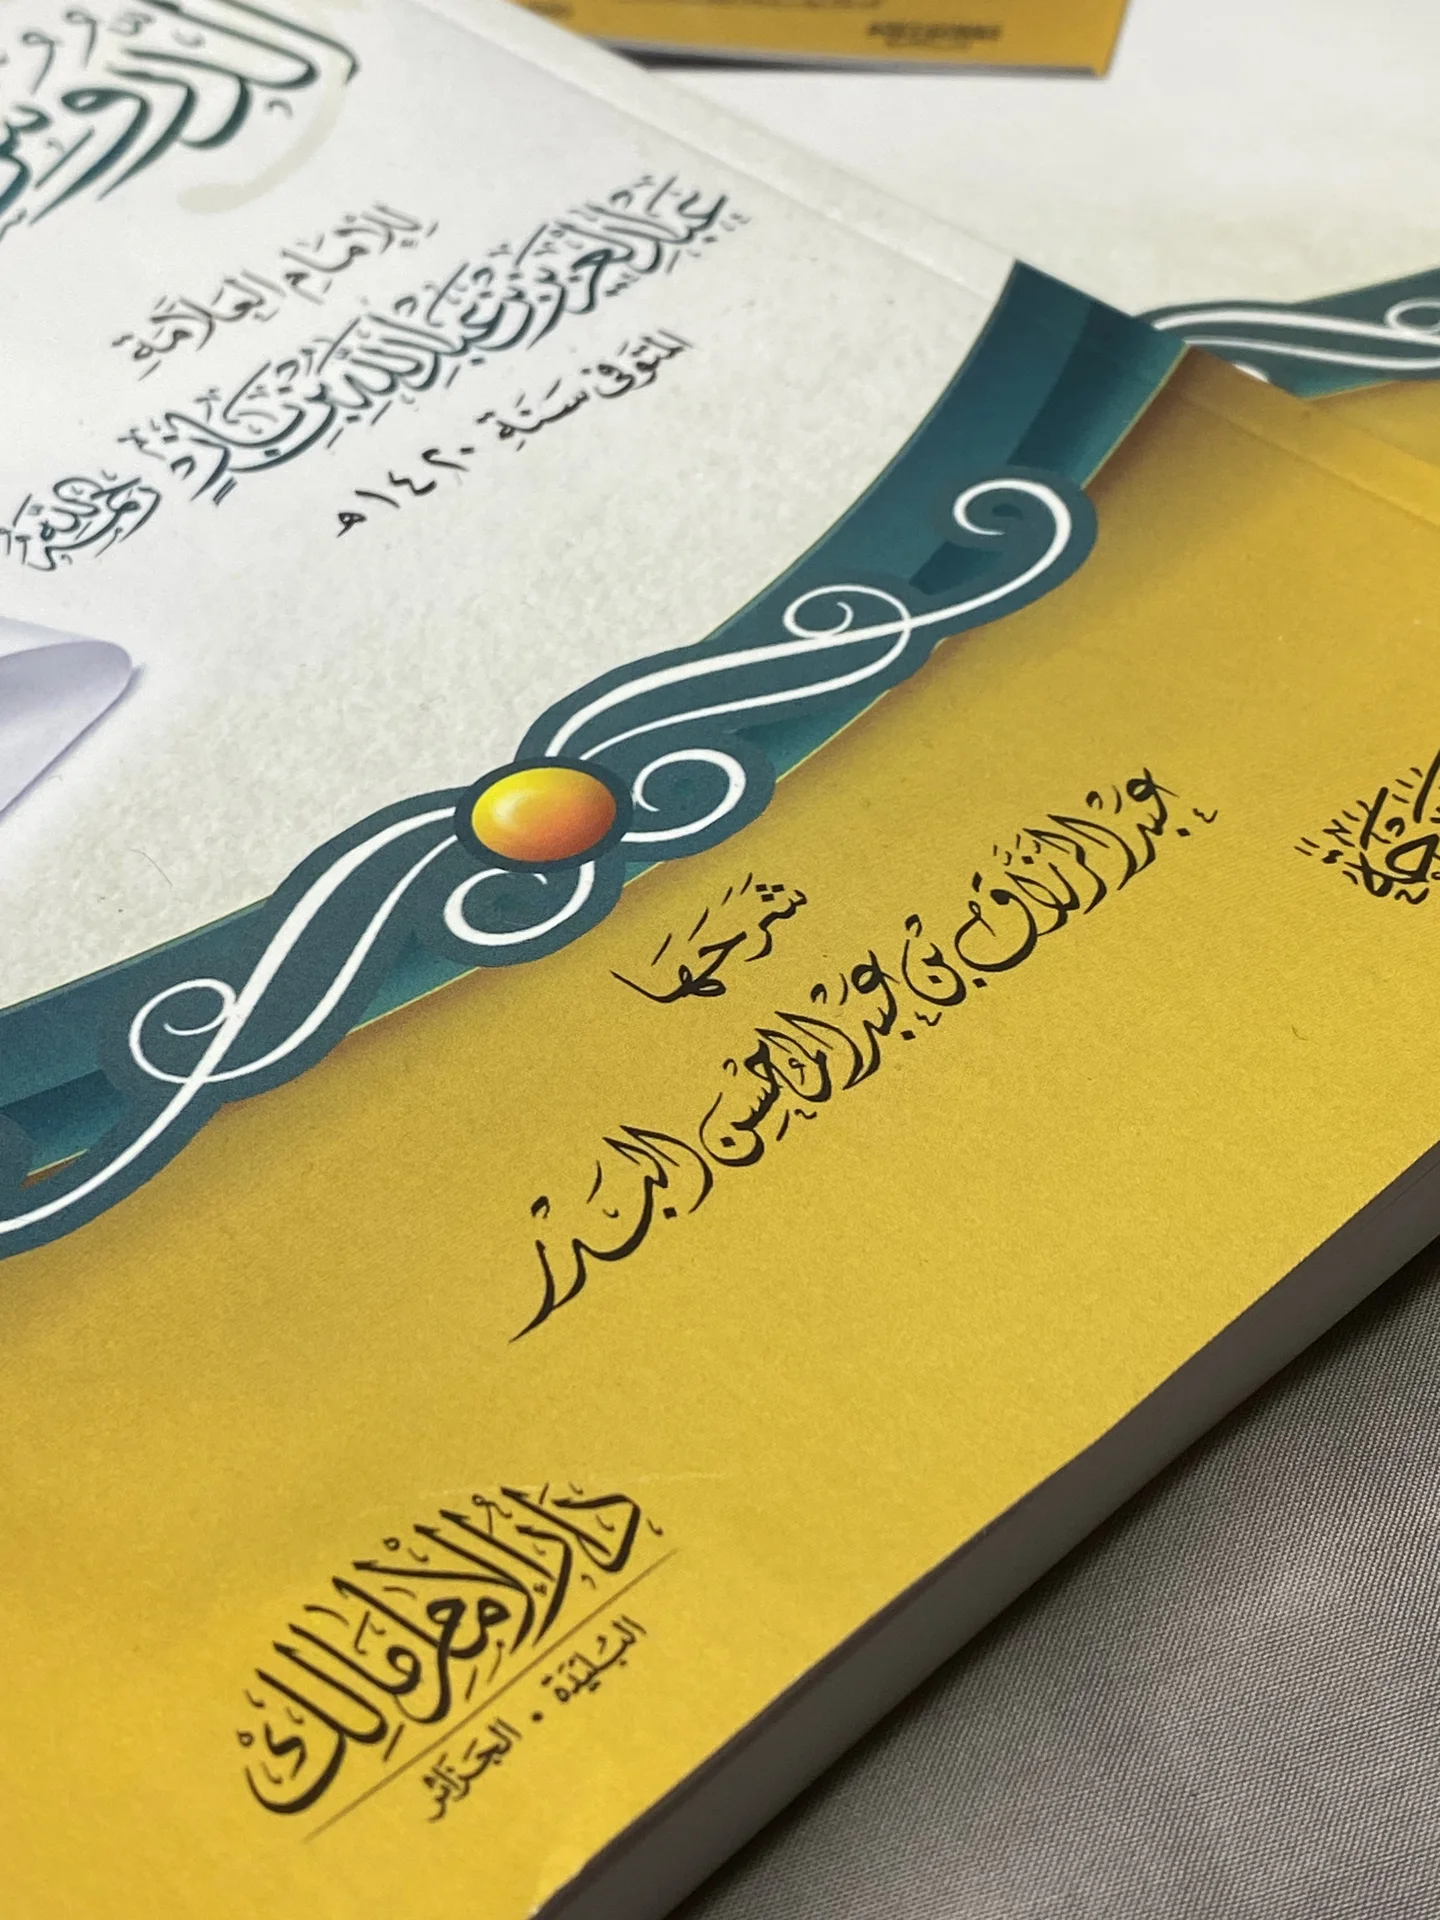 الدُّرُوسُ
لِلْإِمَامِ العَلَّامَةِ
عَبْدِ العَزِيزِ بْنِ عَبْدِ اللَّهِ بْنِ بَازٍ رَحِمَهُ اللَّهُ
المُتَوَفَّى سَنَةَ ١٤٢٠ هـ
شَرَحَهَا
عَبْدُ الرَّزَّاقِ بْنُ عَبْدِ المُحْسِنِ البَدْر
دَارُ الإِمَامِ مَالِك
البُلَيْدَة • الجَزَائِر